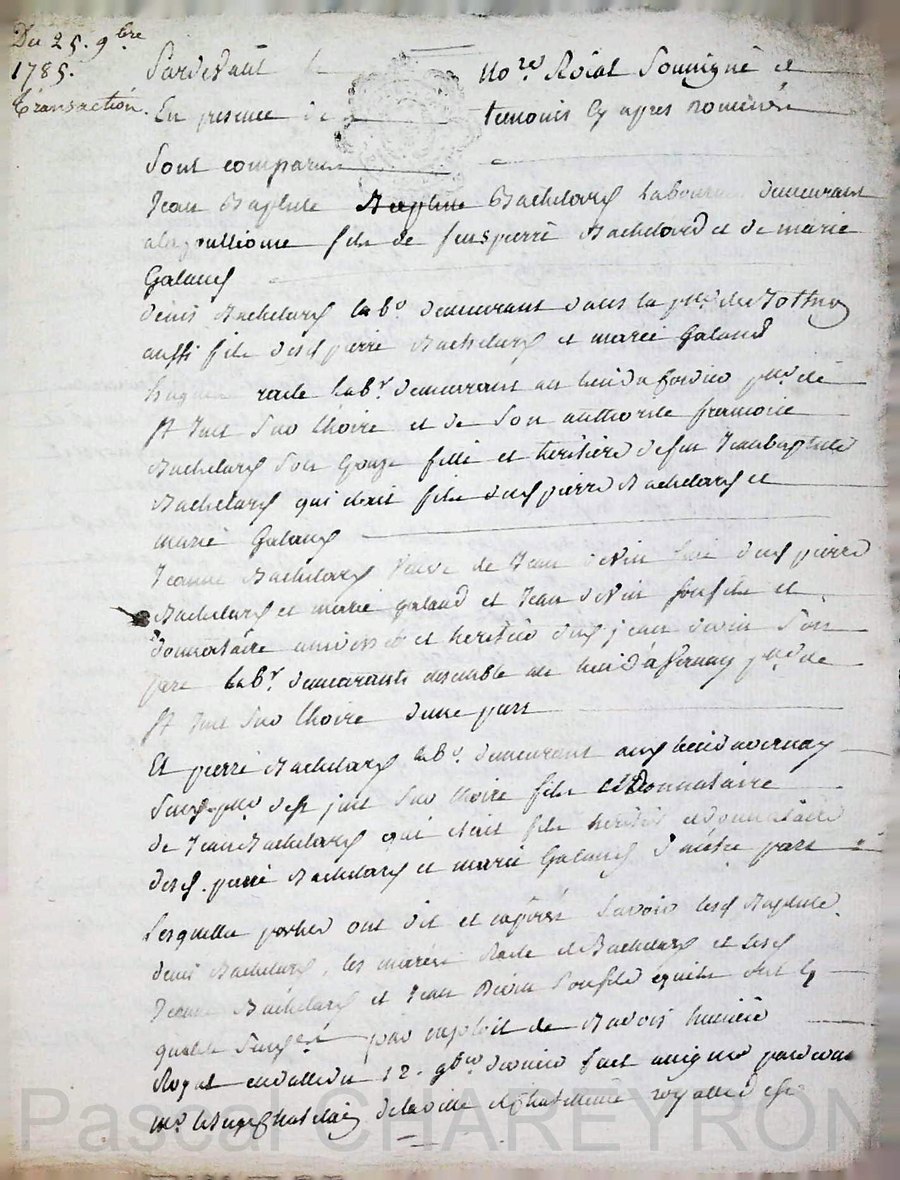 Du 25. 9bre
1785.
Transaction.
Pardevant le No.re Roial Soussigné et
En presence de temoins cy apres nommés
Sont comparus
Jean Baptiste Baptiste Bachelard laboureur demeurant
fils de feus pierre Bachelard et de marie
Galand
denis Bachelard lab.r demeurant dans la p.sse de
aussi fils desd pierre Bachelard et marie Galand
lab.r demeurant au lieu p.sse de
St Just Sur Loire et de Son authorité francoise
Bachelard Son Epouse fille et heritiere de feu Jean baptiste
Bachelard qui etait fils desd pierre Bachelard et
marie Galand
Jeanne Bachelard veuve de Jean devin fille desd pierre
Bachelard et marie galand et Jean devin son fils et
donnataire universel et heritier dud jean devin Son
pere lab.r demeurants ensemble au lieu d'avernay p.sse de
St Just Sur Loire d'une part
Et pierre Bachelard lab.r demeurant aud lieu d'avernay
Susd. p.sse de St just Sur Loire fils et donnataire
de Jean Bachelard qui etait fils heritier et donnataire
desd. pierre Bachelard et marie Galand d'autre part
Lesquelles parties ont dit et Savoir lesd Baptiste
denis Bachelard, les mariés et Bachelard et lesd
Jeanne Bachelard et Jean Devin Son fils qu'ils ont es
qualités Susd par exploit de huissier
Royal en datte du 12. 9bre dernier fait assigner pardevant
mr. le Juge Chatelain de la ville et Chatellenie royalle de
Pascal CHAREYRON